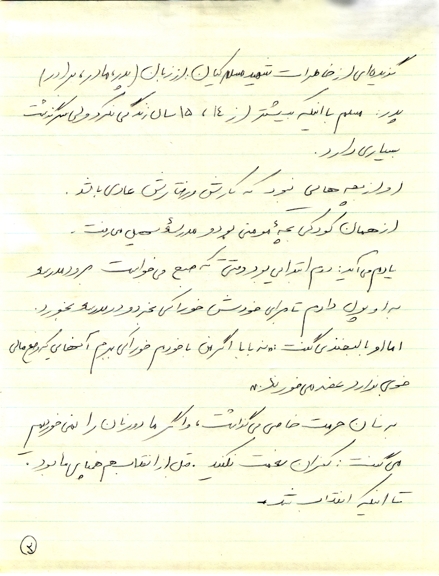 گزیده‌ای از خاطرات شهید مسلم کیان از زبان (پدر، مادر، برادر)
پدر: مسلم با اینکه بیشتر از ۱۴، ۱۵ سال زندگی نکرد ولی سرگذشت
بسیاری دارد.
او از بچه هایی نبود که کارش و رفتارش عادی باشد.
از همان کودکی بچهٔ مؤمنی بود و مدرسهٔ می‌رفت.
یادم می‌آید: دوم ابتدایی بود وقتی که صبح می‌خواست برود مدرسه
به او پول دادم تا برای خودش خوراکی بخرد و در مدرسه بخورد.
اما او با لبخندی گفت: نه بابا اگر من با خودم خوراکی ببرم آنهایی که وضع مالی
خوبی ندارند غصه می‌خورند.
به نان حرمت خاصی می‌گذاشت، و اگر ما دور نان را نمی‌خوردیم
می‌گفت: کفران نعمت نکنید. قبل از انقلاب هم ما بود.
تا اینکه انقلاب شد.
۳